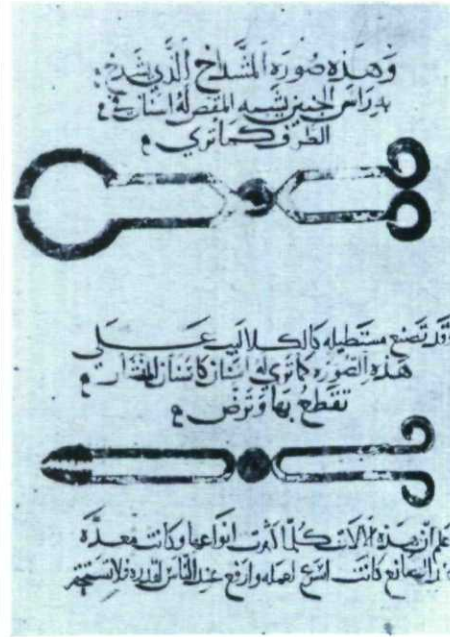 وهذه صورة المشداخ الذي يشدخ
به راس الجنين يشبه المقص له اسنان في
الطرف كما تري
وقد تصنع مستطيله كالكلاليب علــــى
هذه الصوره كما تري له اسنان كاسنان المنشار
تقطع بها وترض
اعلم ان هذه الالات كلما كثرت انواعها وكانت معدة
عند الصانع كانت اسرع لعمله وارفع عند الناس لقدره فلا تستحقر